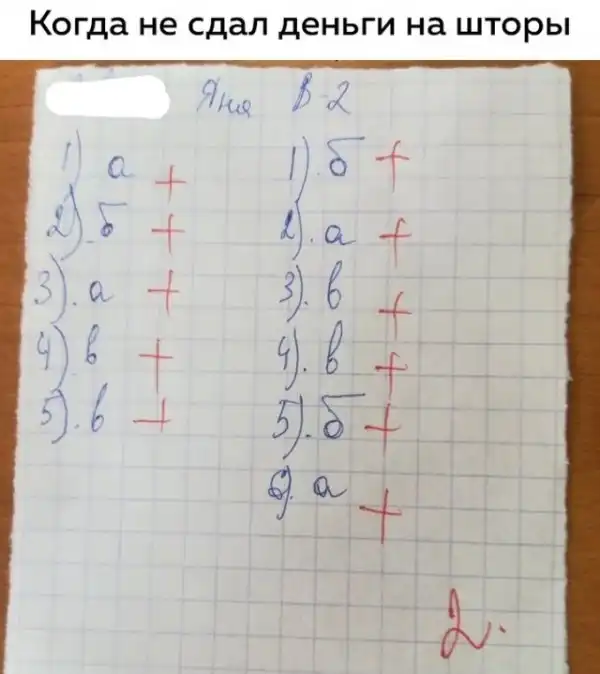 Когда не сдал деньги на шторы
Яна В-2
1) а +
2). б +
3). а +
4) в +
5). в +
1). б +
2). а +
3). в +
4). в +
5). б +
6). а +
2.